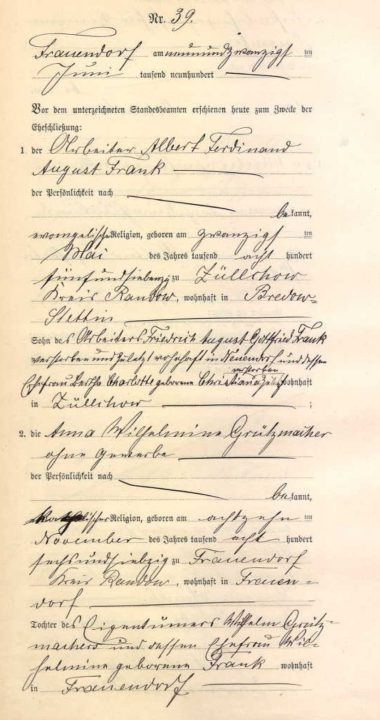 Nr. 39.
Frauendorf am neunundzwanzigsten
Juni tausend neunhundert
Vor dem unterzeichneten Standesbeamten erschienen heute zum Zwecke der
Eheschließung:
1. der Arbeiter Albert Ferdinand
August Frank
der Persönlichkeit nach
bekannt,
evangelischer Religion, geboren am zwanzigsten
Mai des Jahres tausend acht hundert
fünfundsiebzig zu Züllchow
Kreis Randow, wohnhaft in Bredow-
Stettin
Sohn des Arbeiters Friedrich August Gottfried Frank
verstorben und zuletzt wohnhaft in und dessen
verstorben
Ehefrau Charlotte geborene wohnhaft
in Züllchow ;
2. die Anna Wilhelmine Grützmacher
ohne Gewerbe
der Persönlichkeit nach
bekannt,
Religion, geboren am achtzehn
November des Jahres tausend acht hundert
sechsundsiebzig zu Frauendorf
Kreis Randow, wohnhaft in Frauen-
dorf
Tochter des Eigentümers Wilhelm Grütz-
machers und dessen Ehefrau Wil-
helmine geborene Frank wohnhaft
in Frauendorf